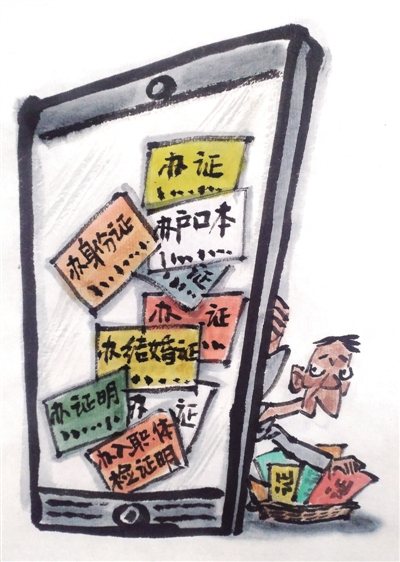 办证
办户口本
办身份证
证
办证
办结婚证
办证明
办证
办入职体
检证明
证